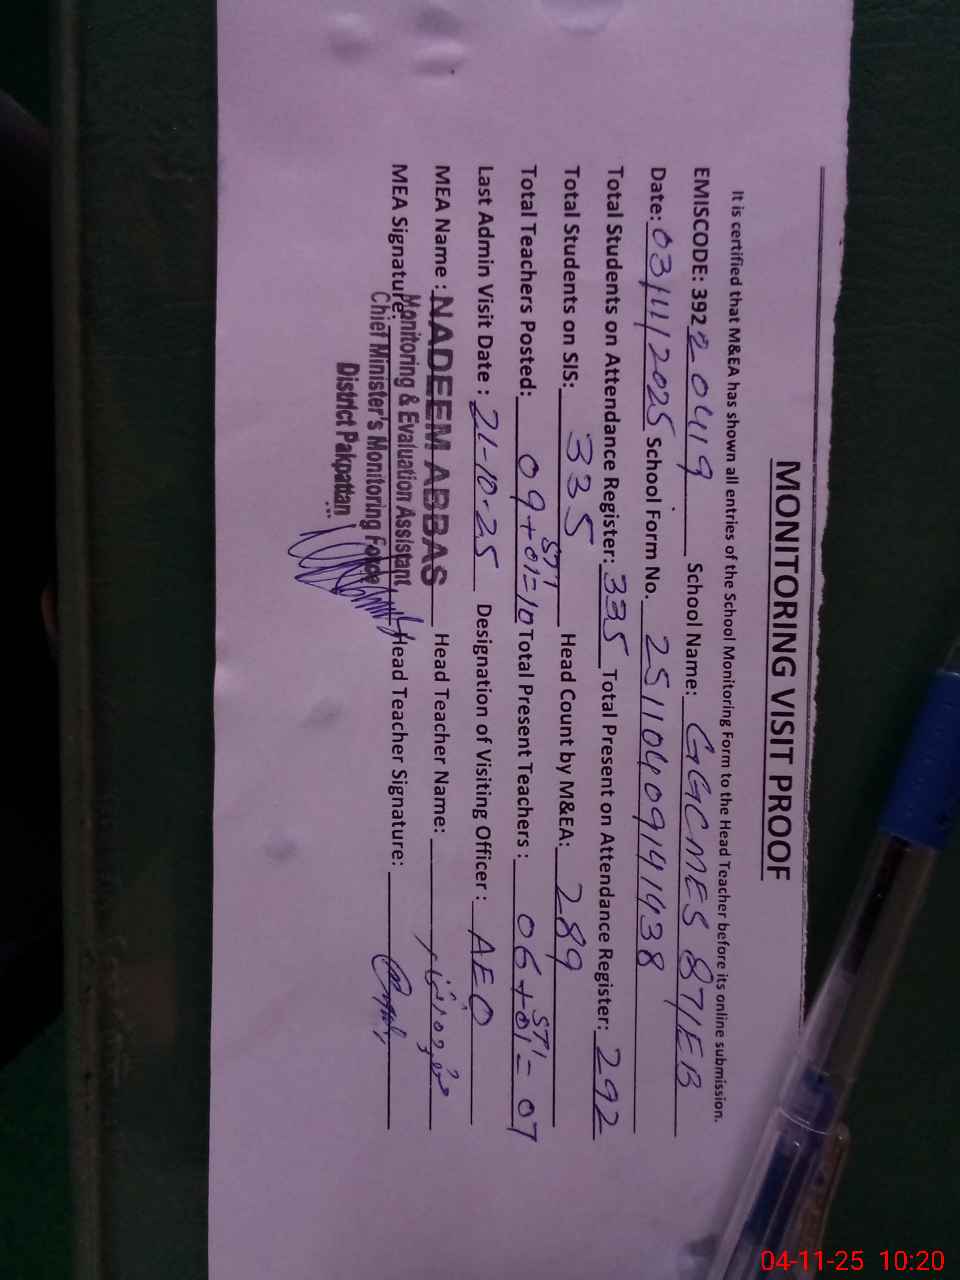 MONITORING VISIT PROOF
It is certified that M&EA has shown all entries of the School Monitoring Form to the Head Teacher before its online submission.
EMISCODE: 39220419 School Name: GGCMES 87/EB
Date: 03/11/2025 School Form No. 251104091411438
Total Students on Attendance Register: 335 Total Present on Attendance Register: 292
Total Students on SIS: 335 Head Count by M&EA: 289
Total Teachers Posted: 09+01=10 Total Present Teachers: 06+01=07
Last Admin Visit Date: 21-10-25 Designation of Visiting Officer: AEO
MEA Name: NADEEM ABBAS Head Teacher Name:
MEA Signature: Head Teacher Signature:
Monitoring & Evaluation Assistant
Chief Minister's Monitoring Force
District Pakpattan
04-11-25 10:20